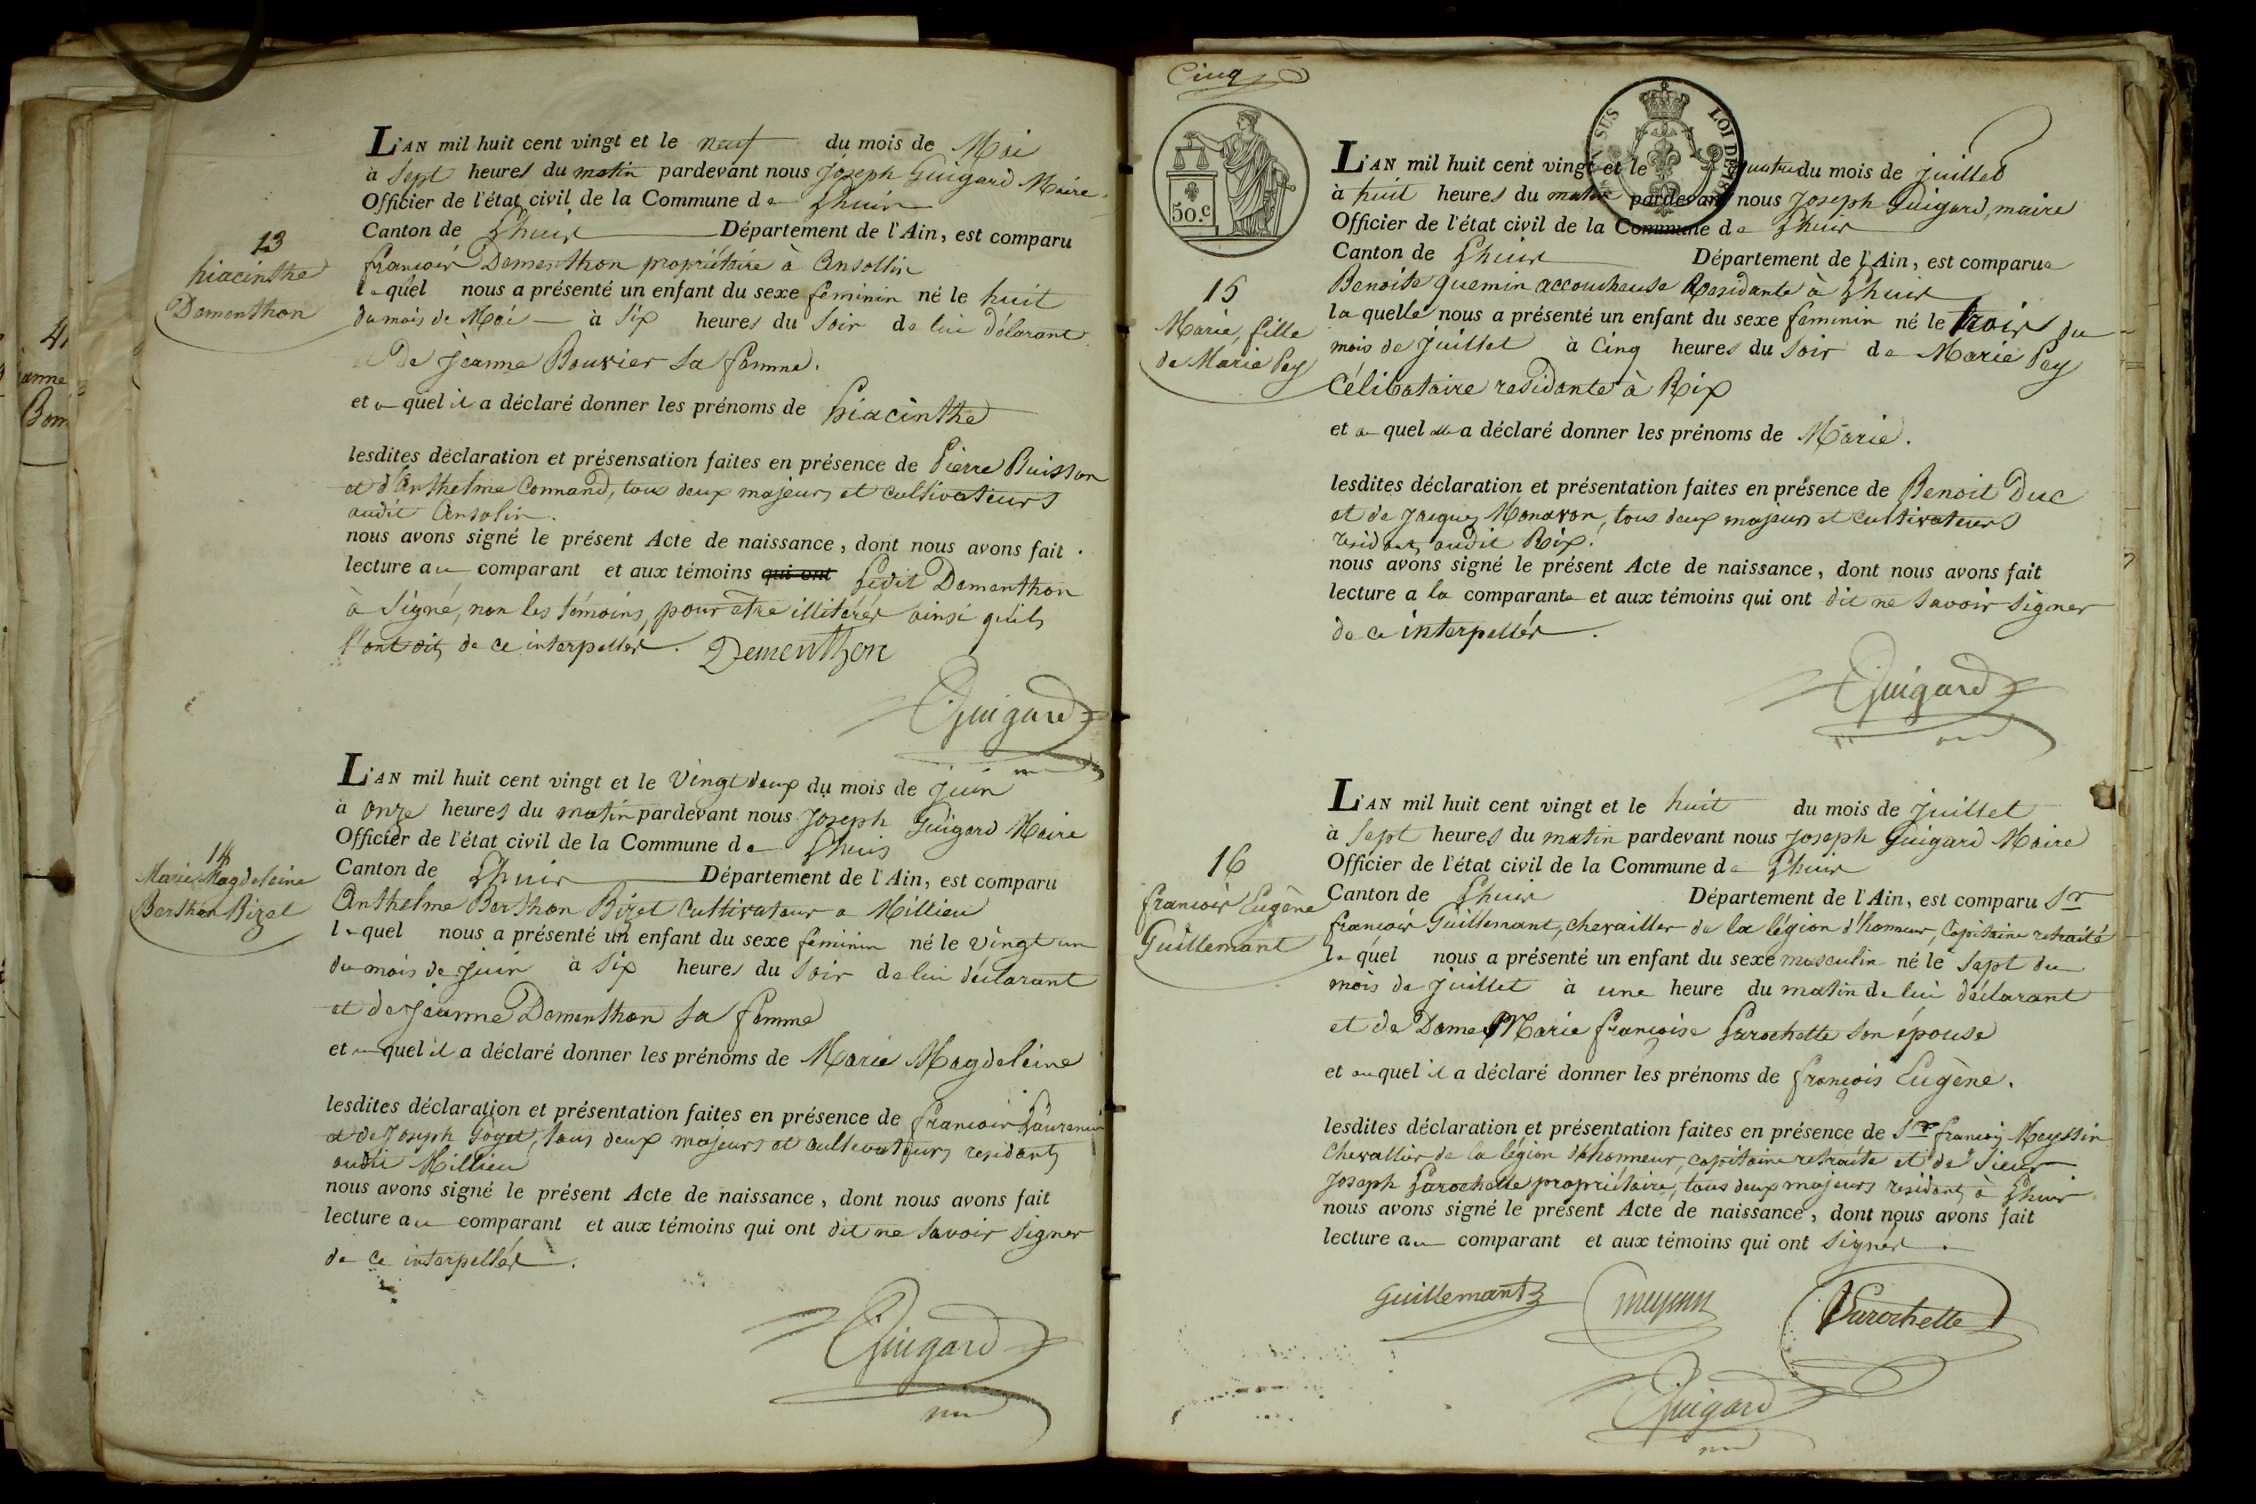 L'AN mil huit cent vingt et le neuf du mois de Mai
à Sept heures du matin pardevant nous Joseph Guigard Maire
Officier de l'état civil de la Commune de Lhuis
Canton de Lhuis Département de l'Ain, est comparu
francois Dementhon propriétaire à Ansollin
lequel nous a présenté un enfant du sexe feminin né le huit
du mois de Mai à Six heures du Soir de lui déclarant
De Jeanne Bouvier Sa femme.
et auquel il a déclaré donner les prénoms de hiacinthe
lesdites déclaration et présensation faites en présence de Pierre Buisson
et d'Anthelme Connand, tous deux majeurs et cultivateurs
audit Ansolin.
nous avons signé le présent Acte de naissance, dont nous avons fait
lecture au comparant et aux témoins qui ont Ledit Dementhon
à Signé, non les témoins, pour etre illiterés ainsi qu'ils
l'ont dit, de ce interpellés. Dementhon
Guigard
13
hiacinthe
Dementhon
L'AN mil huit cent vingt et le Vingt deux du mois de juin
à onze heures du matin pardevant nous Joseph Guigard Maire
Officier de l'état civil de la Commune de Lhuis
Canton de Lhuis Département de l'Ain, est comparu
Anthelme Berthon Bizet Cultivateur a Millieu
lequel nous a présenté un enfant du sexe feminin né le Vingt un
du mois de Juin à Six heures du Soir de lui déclarant
et de Jeanne Dementhon Sa femme
et auquel il a déclaré donner les prénoms de Marie Magdeleine
lesdites déclaration et présentation faites en présence de francois Laurencin
et de Joseph Goyet, tous deux majeurs et cultivateurs residants
audit Millieu
nous avons signé le présent Acte de naissance, dont nous avons fait
lecture au comparant et aux témoins qui ont dit ne Savoir Signer
de ce interpellés.
Guigard
14
Marie Magdeleine
Berthon Bizet
Cinq
50.C
LOI DE 18
L'AN mil huit cent vingt et le quatre du mois de juillet
à huit heures du matin pardevant nous Joseph Guigard, maire
Officier de l'état civil de la Commune de Lhuis
Canton de Lhuis Département de l'Ain, est comparue
Benoite quemin accoucheuse Residante à Lhuis
laquelle nous a présenté un enfant du sexe feminin né le trois du
mois de Juillet à Cinq heures du Soir de Marie Pey
Célibataire residante à Rix
et auquel elle a déclaré donner les prénoms de Marie.
lesdites déclaration et présentation faites en présence de Benoit Duc
et de Jacques Monavon, tous deux majeurs et cultivateurs
residants audit Rix.
nous avons signé le présent Acte de naissance, dont nous avons fait
lecture a la comparante et aux témoins qui ont dit ne Savoir Signer
de ce interpellés.
Guigard
15
Marie, fille
de Marie Pey
L'AN mil huit cent vingt et le huit du mois de Juillet
à Sept heures du matin pardevant nous Joseph Guigard Maire
Officier de l'état civil de la Commune de Lhuis
Canton de Lhuis Département de l'Ain, est comparu Sr
francois Guillemant, chevailler de la légion d'honneur, Capitaine retraité
lequel nous a présenté un enfant du sexe masculin né le Sept du
mois de Juillet à une heure du matin de lui déclarant
et de Dame Marie françoise Larochette Son épouse
et auquel il a déclaré donner les prénoms de françois Eugène.
lesdites déclaration et présentation faites en présence de Sr françois Meyssin
Chevallier de la légion d'honneur, capitaine retraite et de Sieur
Joseph Larochette propriétaire, tous deux majeurs residants à Lhuis
nous avons signé le présent Acte de naissance, dont nous avons fait
lecture au comparant et aux témoins qui ont Signés.
Guillemant Larochette
Guigard
16
francois Eugène
Guillemant